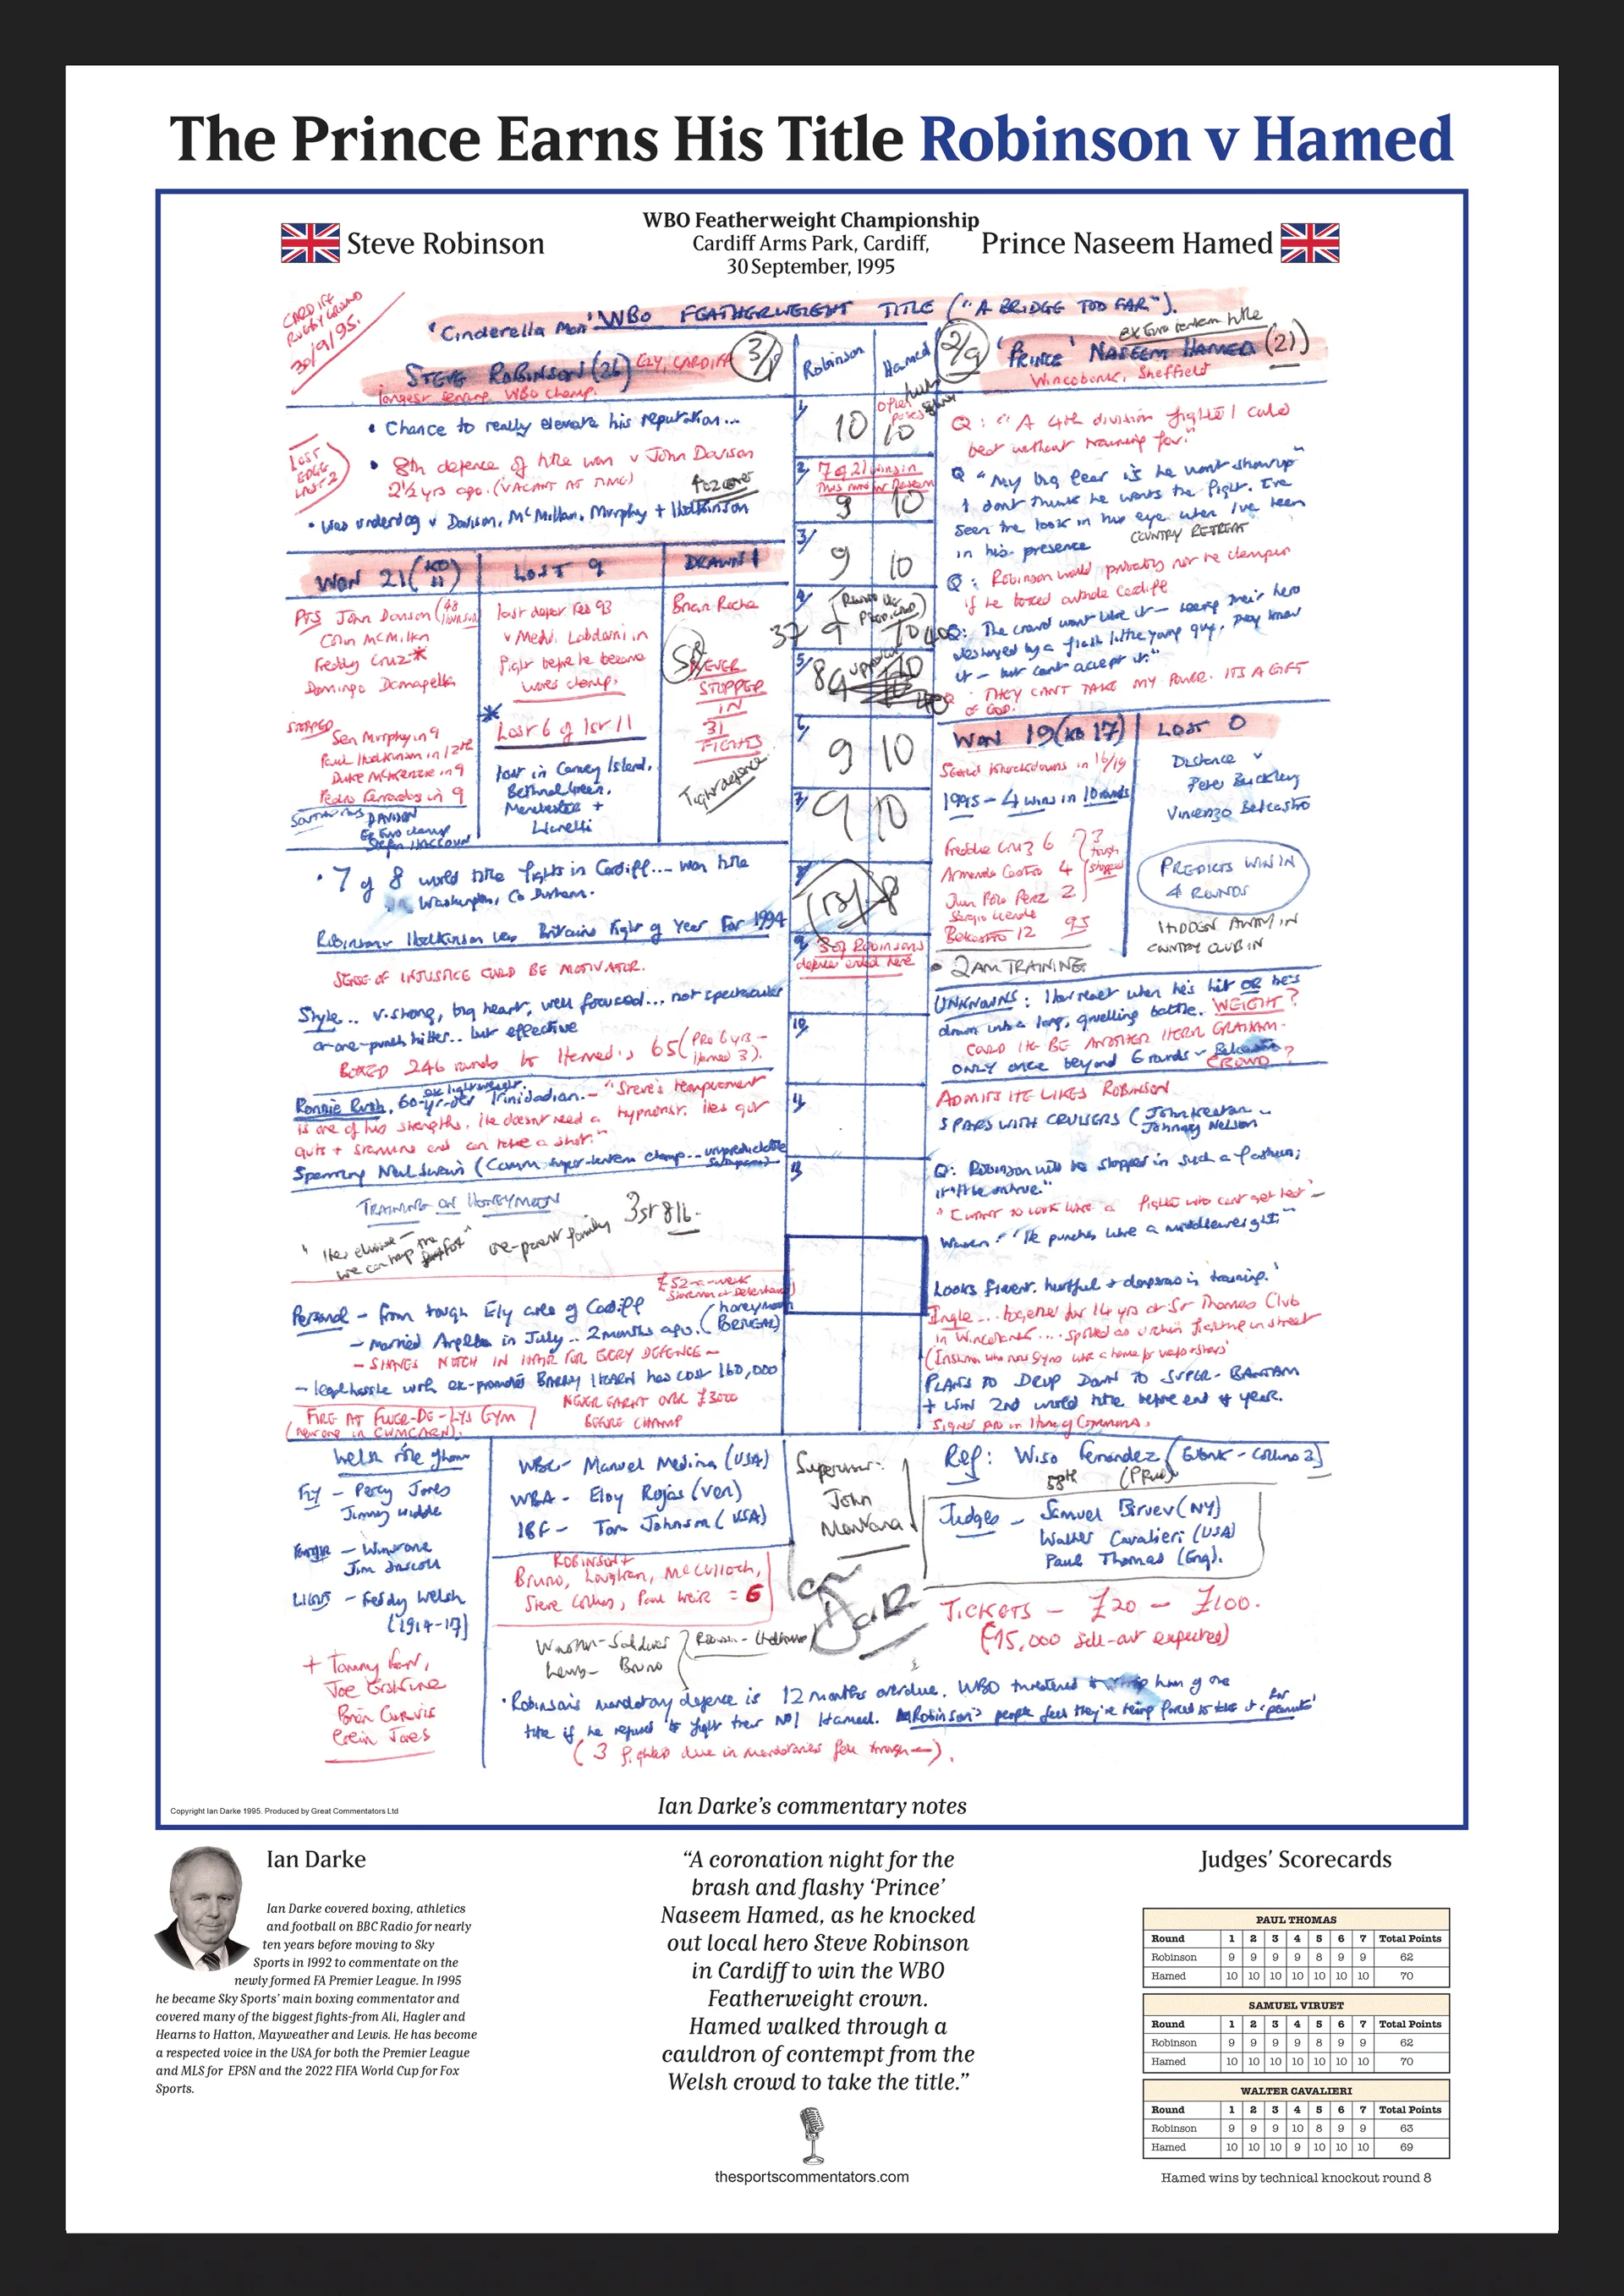 The Prince Earns His Title Robinson v Hamed
WBO Featherweight Championship
Cardiff Arms Park, Cardiff,
30 September, 1995
Steve Robinson
Prince Naseem Hamed
CARDIFF
RUGBY GROUND
30/9/95.
WBO FEATHERWEIGHT TITLE ("A BRIDGE TOO FAR").
'Cinderella Man'
STEVE ROBINSON (26) ELY, CARDIFF
3/1
longest serving WBO champ.
Robinson
Hamed
2/9
'PRINCE' NASEEM HAMED (21)
Wincobank, Sheffield
• Chance to really elevate his reputation...
LOST
EDGE
LAST 2
• 8th defence of title won v John Davison
2½ yrs ago. (VACANT AT TIME)
• Was underdog v Davison, McMillan, Murphy + Hodkinson
WON 21 (KO 11)
LOST 9
DRAWN 1
PTS John Davison
Colin McMillan
Freddy Cruz*
Domingo Damapella
STOPPED
Sean Murphy in 9
Paul Hodkinson in 12th
Duke McKenzie in 9
Pedro Ferradas in 9
SOUTHPAWS DAVISON
Ex Euro champ
last defeat Feb 93
v Medhi Labdouni in
fight before he became
world champ.
* Lost 6 of 1st 11
lost in Canvey Island,
Bethnal Green,
Manchester +
Llanelli
Brian Roche
NEVER
STOPPED
IN
31
FIGHTS
Tight defence
• 7 of 8 world title fights in Cardiff... won title
in Washington, Co Durham.
Robinson v Hodkinson was Britains Fight of Year For 1994
SENSE OF INJUSTICE COULD BE MOTIVATOR.
Style.. v. strong, big heart, well focused... not spectacular
or one-punch hitter.. but effective
BOXED 246 rounds to Hamed's 65 (PRO 6 yrs –
Hamed 3).
Ronnie Rush, 60-yr-old Trinidadian. – "Steve's temprement
is one of his strengths. He doesn't need a hypnotist. He's got
guts + stamina and can take a shot."
Sparring Neil Swain (Comm. super-bantam champ.. unpredictable
TRAINING ON HONEYMOON
one-parent family
3st 8lb.
£52-a-week
Storeman at Debenhams
Personal – from tough Ely area of Cardiff
– married Angela in July.. 2 months ago. (honeymoon
PORTUGAL)
– SHAVES NOTCH IN HAIR FOR EVERY DEFENCE –
– legal hassle with ex-promoter BARRY HEARN has cost 160,000
FIRE AT FLEUR-DE-LYS GYM
(new one in CWMCARN).
NEVER EARNT OVER £3000
BEFORE CHAMP
1/ 10 10
2/ 7 of 21 wins in
this round for Naseem
9 10
3/ 9 10
4/ 9 10
37 40
5/ 8
6/ 9 10
7/ 9 10
8/
9/ 3 of Robinsons
defences ended here
10/
Q: "A 4th division fighter I could
beat without training for."
Q "My big fear is he wont show up
I dont think he wants the fight. I've
seen the look in his eye when I've been
in his presence
COUNTRY RETREAT
Q: Robinson would probably not be champion
if he boxed outside Cardiff
Q: The crowd wont like it – seeing their hero
destroyed by a flash little young guy. They know
it – but cant accept it."
Q: THEY CAN'T TAKE MY POWER. ITS A GIFT
OF GOD.
WON 19 (KO 17)
LOST 0
Scored knockdowns in 16/19
1995 – 4 wins in 10 rounds
Freddie Cruz 6
Armando Castro 4
Juan Polo Perez 2
3
tough
stopped
Belcastro 12
Distance v
Peter Buckley
Vincenzo Belcastro
PREDICTS WIN IN
4 ROUNDS
HIDDEN AWAY IN
COUNTRY CLUB IN
• 2AM TRAINING
UNKNOWNS: How react when he's hit OR he's
drawn into a long, gruelling battle. WEIGHT?
COULD HE BE ANOTHER HEROL GRAHAM.
ONLY once beyond 6 rounds – Belcastro
CROWD?
ADMITS HE LIKES ROBINSON
SPARS WITH CRUISERS (John Keeton
Johnny Nelson
Q: Robinson will be stopped in such a fashion,
"I WANT TO LOOK LIKE A fighter who cant get beat" –
Warren: "He punches like a middleweight"
Looks fluent, hurtful + dangerous in training.'
Ingle... together for 14 yrs at St Thomas Club
in Wincobank.... spotted as urchin fighting in street
PLANS TO DROP DOWN TO SUPER-BANTAM
+ WIN 2nd world title before end of year.
Signed pro in House of Commons.
Fly – Percy Jones
Jimmy Wilde
Feather – Winstone
Jim Driscoll
LIGHT – Freddy Welsh
(1914-17)
+ Tommy Farr,
Joe Erskine
Brian Curvis
Colin Jones
WBC – Manuel Medina (USA)
WBA – Eloy Rojas (Ven)
IBF – Tom Johnson (USA)
ROBINSON +
Bruno, Loughran, McCulloch,
Steve Collins, Paul Weir = 6
Lewis – Bruno
Supervisor:
John
Montana
Ref: Wiso Fernandez (Eubank – Collins 2)
58th
Judges – Samuel Viruet (NY)
Walter Cavalieri (USA)
Paul Thomas (Eng).
TICKETS – £20 – £100.
(15,000 sell-out expected)
• Robinson's mandatory defence is 12 months overdue. WBO threatened to strip him of the
title if he refused to fight their No1 Hamed. Robinson's people feel they're being forced to take it for peanuts
(3 fights due in mandatories fell through –).
Copyright Ian Darke 1995. Produced by Great Commentators Ltd
Ian Darke's commentary notes
Ian Darke
Ian Darke covered boxing, athletics
and football on BBC Radio for nearly
ten years before moving to Sky
Sports in 1992 to commentate on the
newly formed FA Premier League. In 1995
he became Sky Sports' main boxing commentator and
covered many of the biggest fights-from Ali, Hagler and
Hearns to Hatton, Mayweather and Lewis. He has become
a respected voice in the USA for both the Premier League
and MLS for EPSN and the 2022 FIFA World Cup for Fox
Sports.
"A coronation night for the
brash and flashy 'Prince'
Naseem Hamed, as he knocked
out local hero Steve Robinson
in Cardiff to win the WBO
Featherweight crown.
Hamed walked through a
cauldron of contempt from the
Welsh crowd to take the title."
thesportscommentators.com
Judges' Scorecards
PAUL THOMAS
Round 1 2 3 4 5 6 7 Total Points
Robinson 9 9 9 9 8 9 9 62
Hamed 10 10 10 10 10 10 10 70
SAMUEL VIRUET
Round 1 2 3 4 5 6 7 Total Points
Robinson 9 9 9 9 8 9 9 62
Hamed 10 10 10 10 10 10 10 70
WALTER CAVALIERI
Round 1 2 3 4 5 6 7 Total Points
Robinson 9 9 9 10 8 9 9 63
Hamed 10 10 10 9 10 10 10 69
Hamed wins by technical knockout round 8